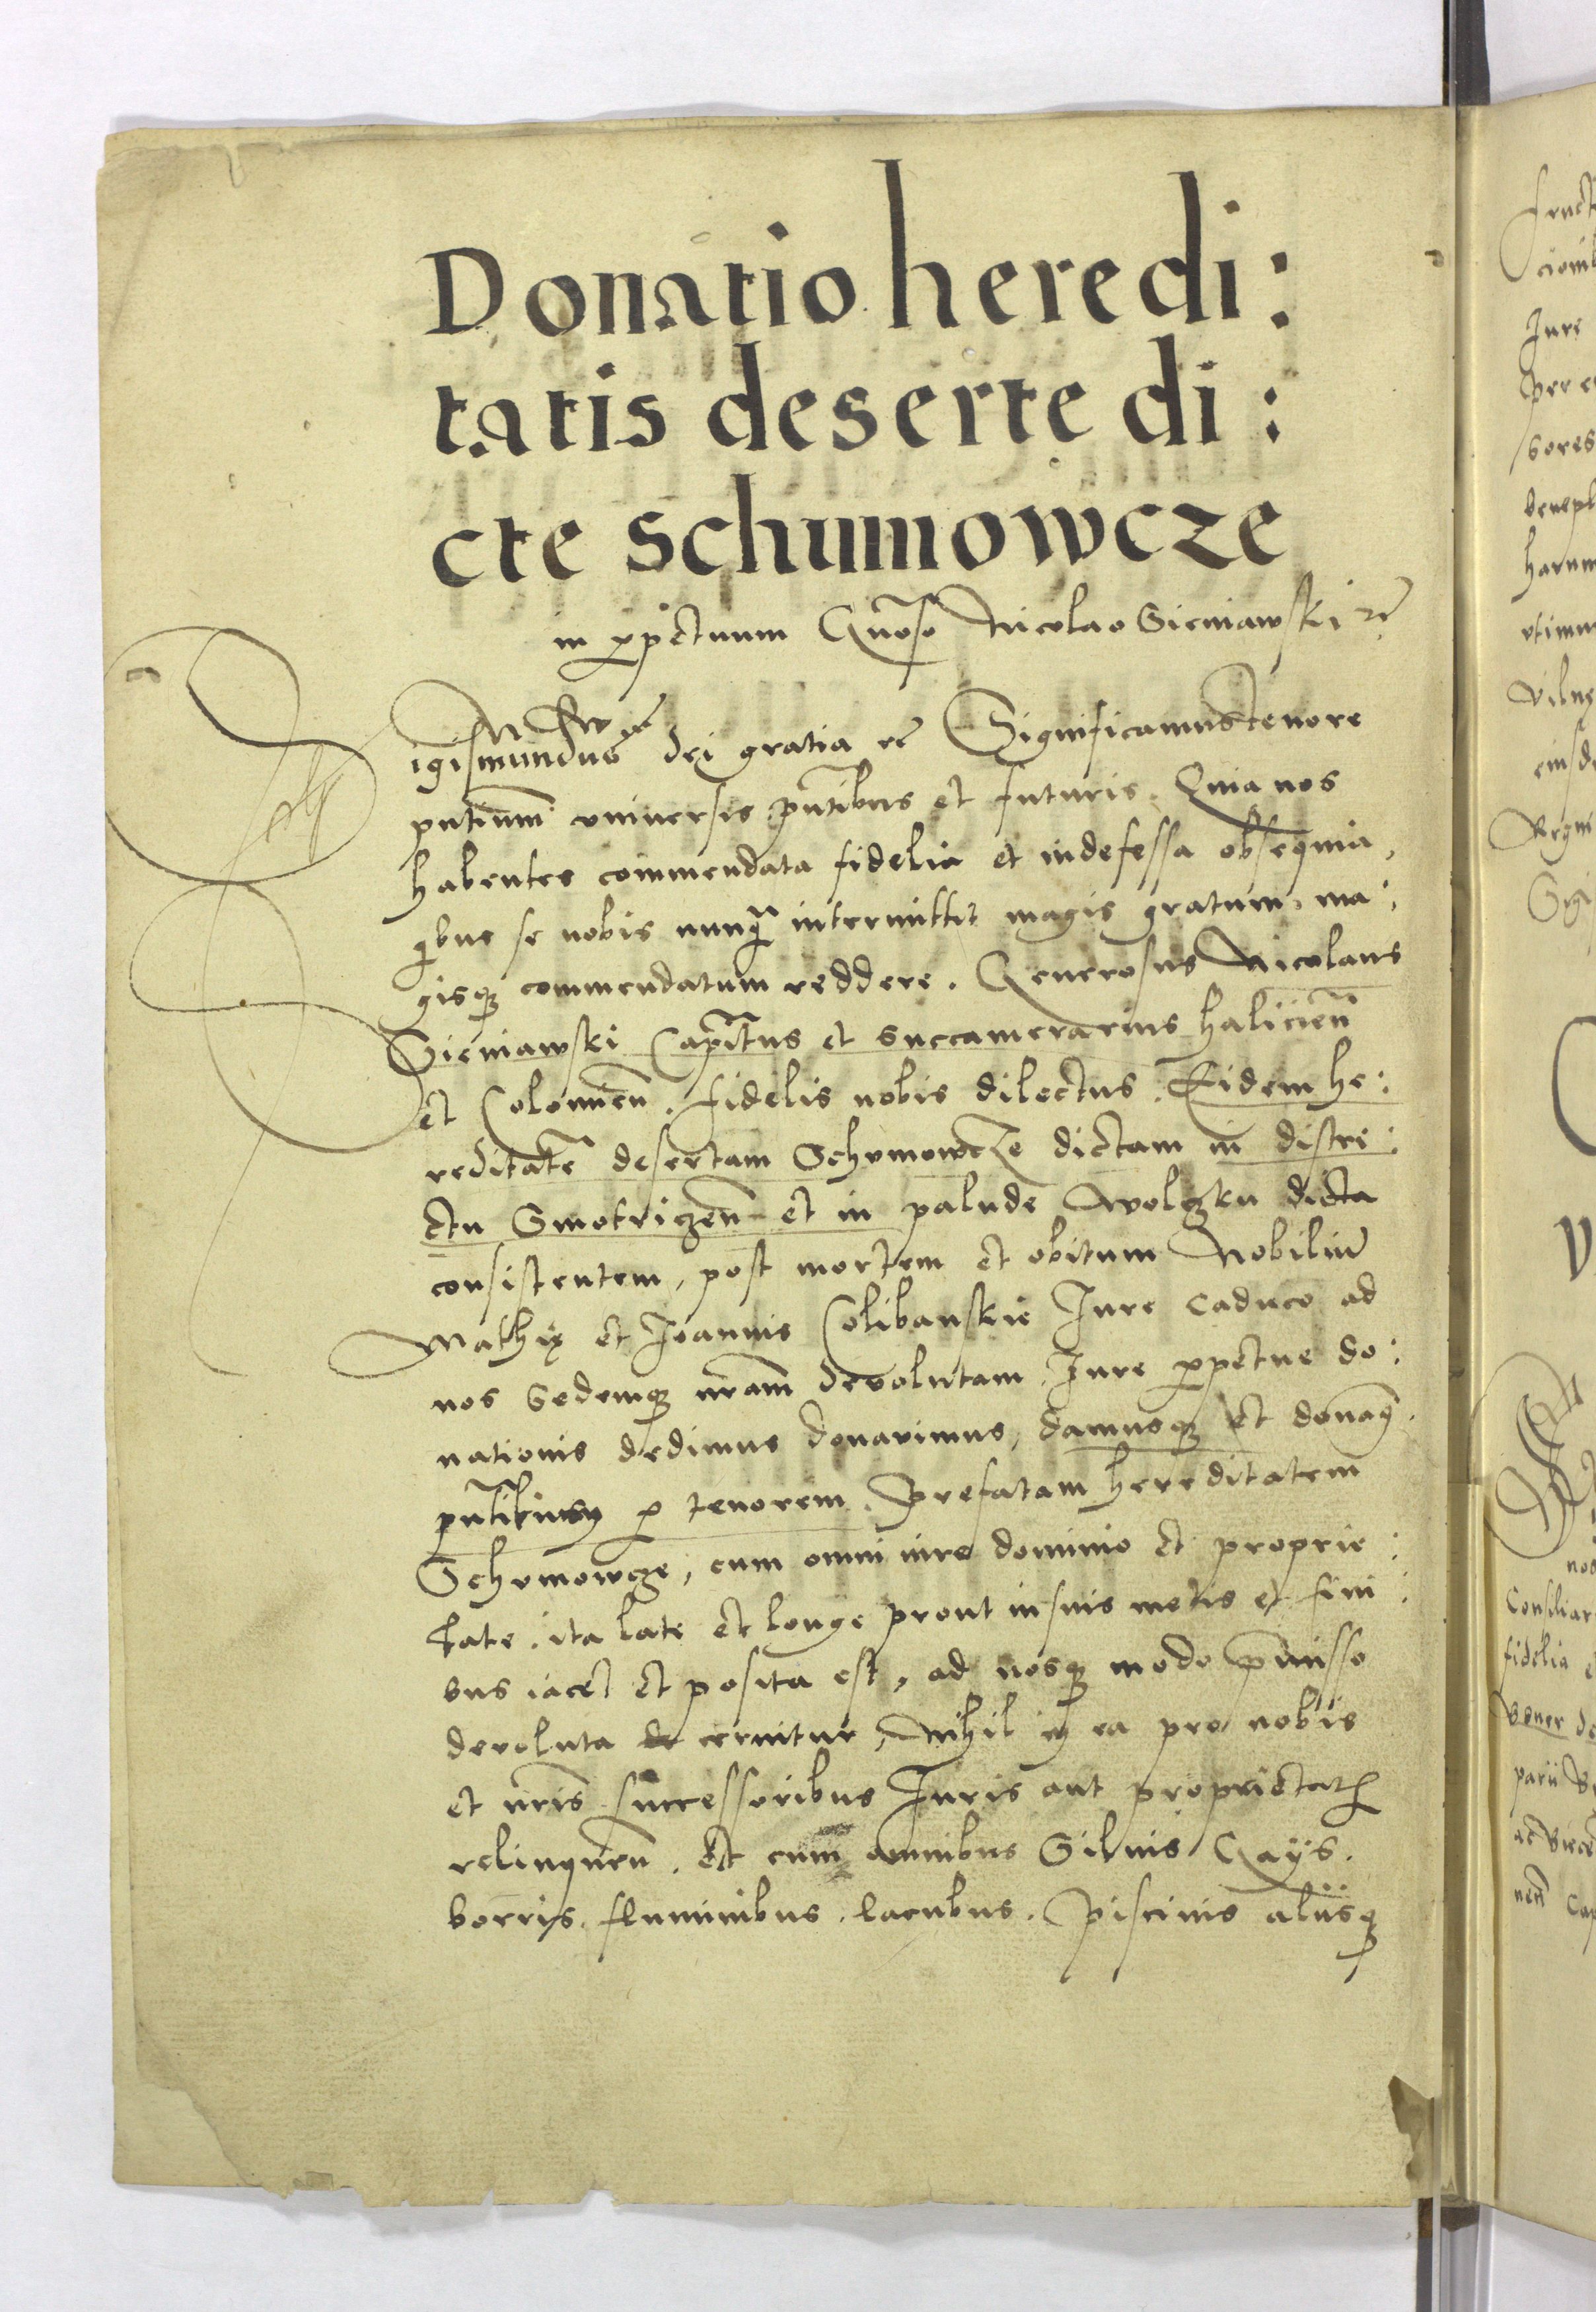 Donatio heredi:
tatis deserte di:
cte schumowcze
in ppetuum Gnoso Nicolao Sieniawski rc
Sigismundus dei gratia rc Significamus tenore
pntium vniuersis pntibus et futuris. Quia nos
habentes commendata fidelia et indefessa obsequia,
qbus se nobis nunq intermittit magis gratum, ma:
gisq commendatum reddere. Generosus Nicolaus
Sieniawski Capitus et succamerarius halicien
et Colomien. fidelis nobis dilectus. Eidem he:
reditate desertam Schumowcze dictam in distri:
ctu Smotriczen et in palude Wolczku dicta
consistentem, post mortem et obitum Nobiliu
Mathię et Joannis Colibanskie Jure caduco ad
nos Sedemq nram deuolutam. Jure ppetue do:
nationis dedimus donauimus, damusq et donaq
pntibusq p tenorem. Prefatam hereditatem
Schumowcze, cum omni iure dominio et proprie:
tate. ita late et longe prout in suis metis et fini:
bus iacet et posita est, ad nosq modo pmisso
deuoluta de cernitur, Nihil in ea pro nobis
et nris successoribus Juris aut proprietatis
relinquen. Et cum omnibus Siluis Gays.
borris. fluminibus. lacubus. Piscinis aliisq